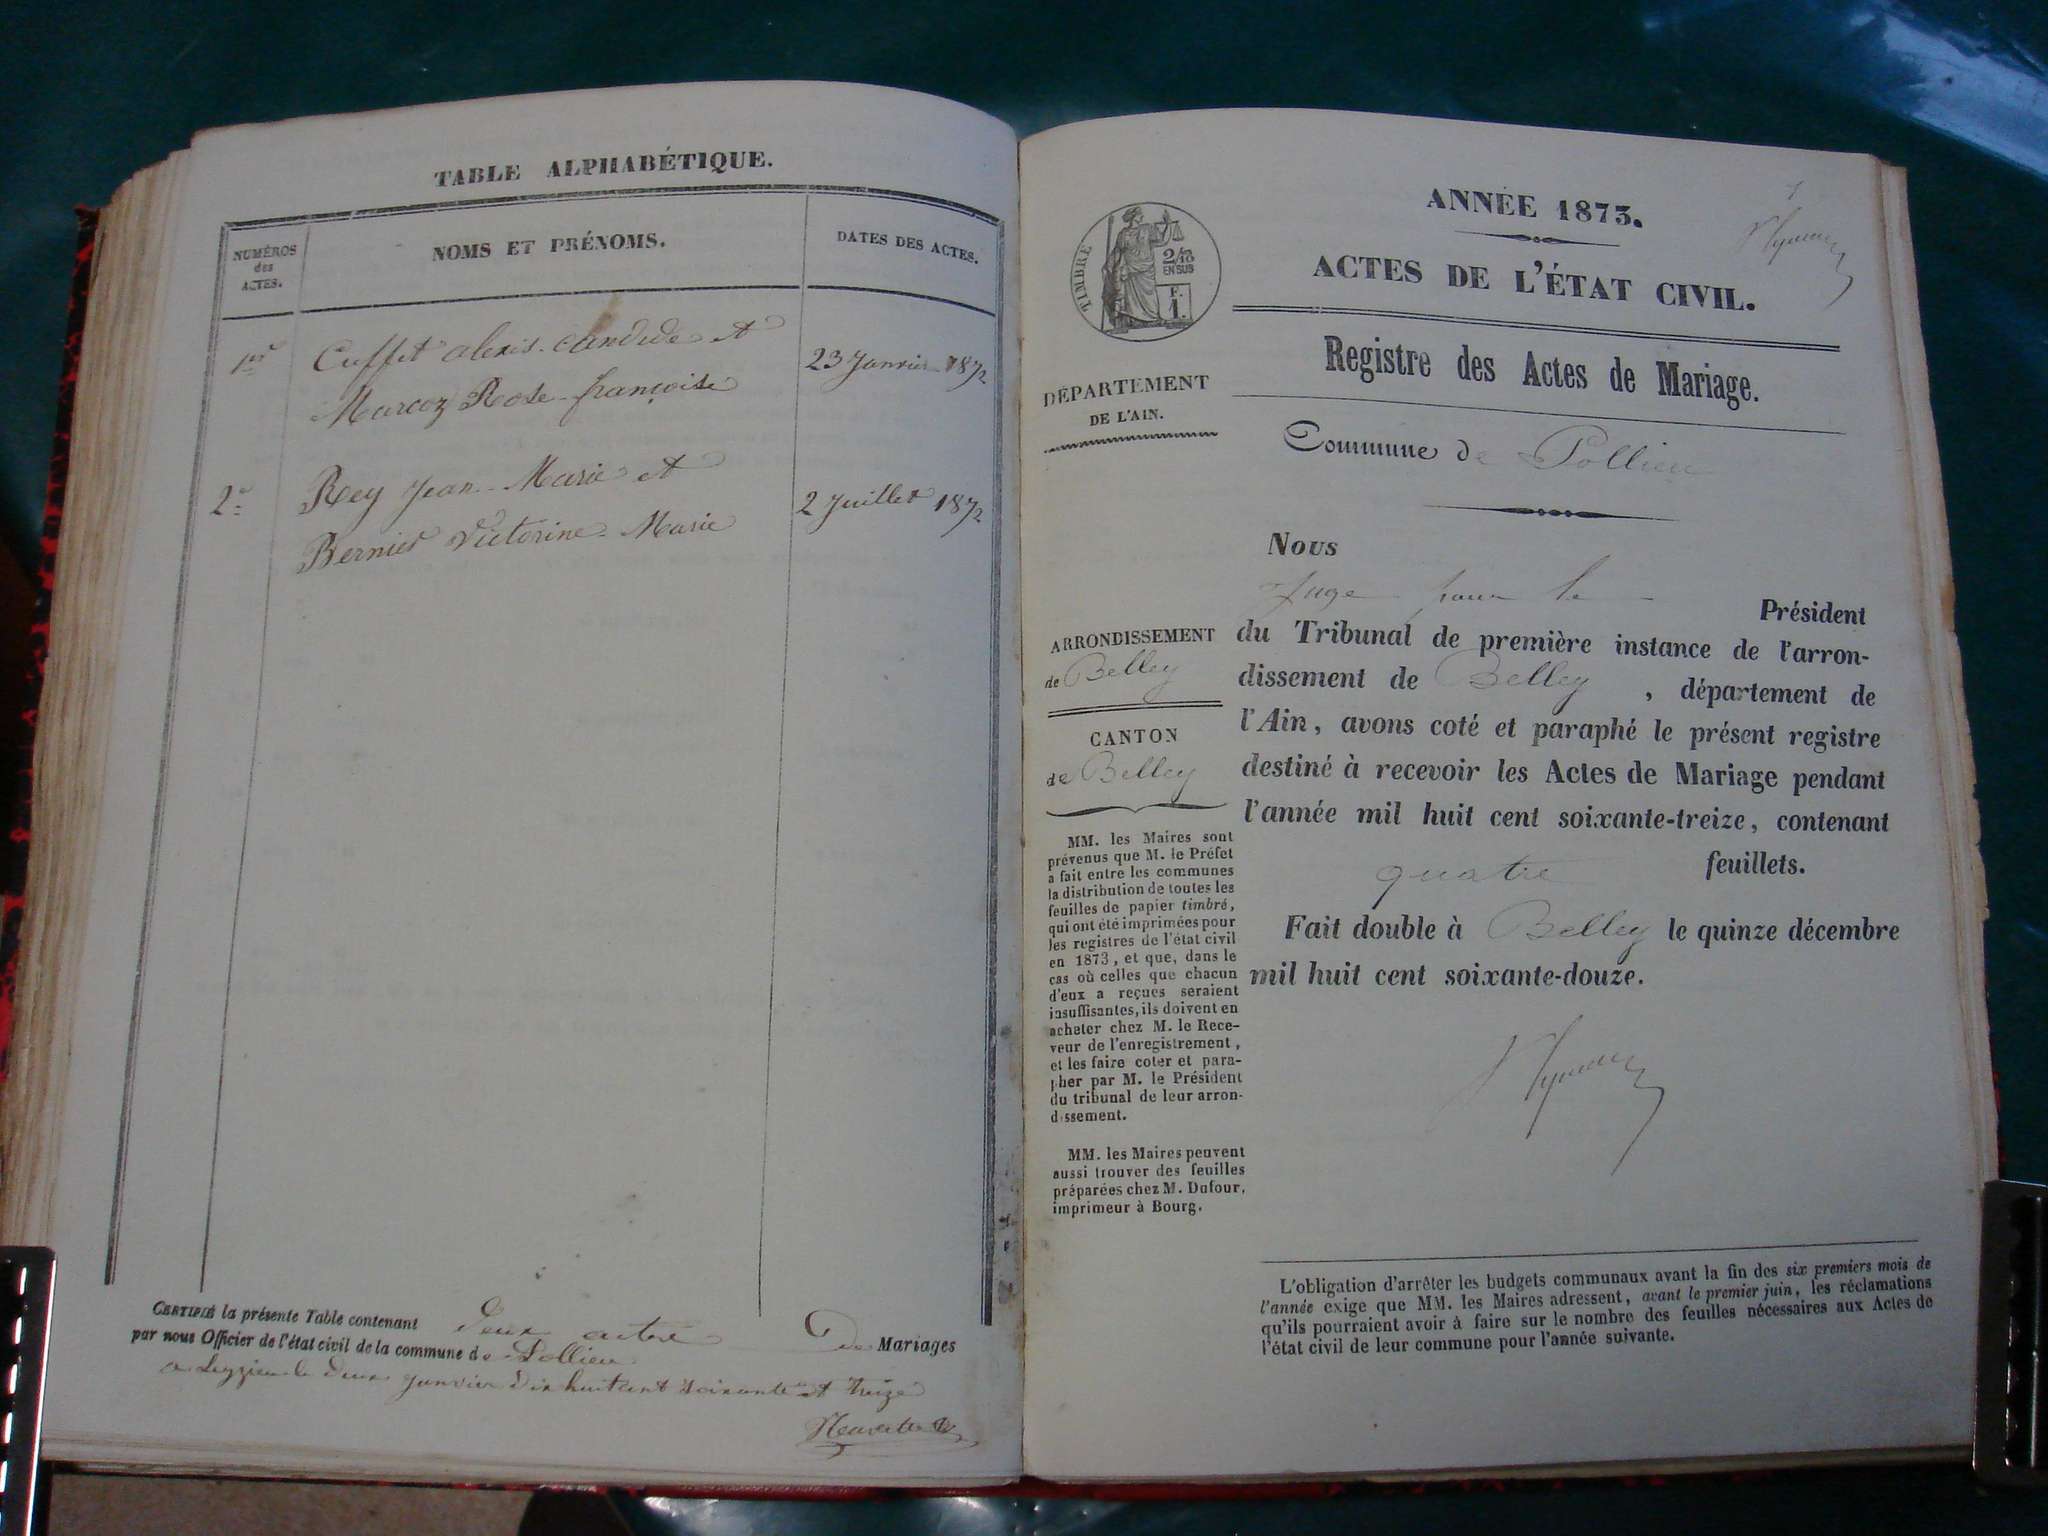 TABLE ALPHABÉTIQUE.
NUMÉROS
des
ACTES.
NOMS ET PRÉNOMS.
DATES DES ACTES.
1er
Cuffet alexis candide et
Marcoz Rose françoise
23 Janvier 1872
2e
Rey Jean Marie et
Bernier Victorine Marie
2 Juillet 1872
CERTIFIÉ la présente Table contenant deux actes De Mariages
par nous Officier de l'état civil de la commune de Pollieu
a le deux janvier dix huit cent soixante et treize
ANNÉE 1873.
ACTES DE L'ÉTAT CIVIL.
TIMBRE
2/10
EN SUS
F.
1.
Registre des Actes de Mariage.
DÉPARTEMENT
DE L'AIN.
Commune de Pollieu
Nous
Juge pour le Président
du Tribunal de première instance de l'arron-
dissement de Belley, département de
l'Ain, avons coté et paraphé le présent registre
destiné à recevoir les Actes de Mariage pendant
l'année mil huit cent soixante-treize, contenant
quatre feuillets.
Fait double à Belley le quinze décembre
mil huit cent soixante-douze.
ARRONDISSEMENT
de Belley
CANTON
de Belley
MM. les Maires sont
prévenus que M. le Préfet
a fait entre les communes
la distribution de toutes les
feuilles de papier timbré,
qui ont été imprimées pour
les registres de l'état civil
en 1873, et que, dans le
cas où celles que chacun
d'eux a reçues seraient
insuffisantes, ils doivent en
acheter chez M. le Rece-
veur de l'enregistrement,
et les faire coter et para-
pher par M. le Président
du tribunal de leur arron-
dissement.
MM. les Maires peuvent
aussi trouver des feuilles
préparées chez M. Dufour,
imprimeur à Bourg.
L'obligation d'arrêter les budgets communaux avant la fin des six premiers mois de
l'année exige que MM. les Maires adressent, avant le premier juin, les réclamations
qu'ils pourraient avoir à faire sur le nombre des feuilles nécessaires aux Actes de
l'état civil de leur commune pour l'année suivante.